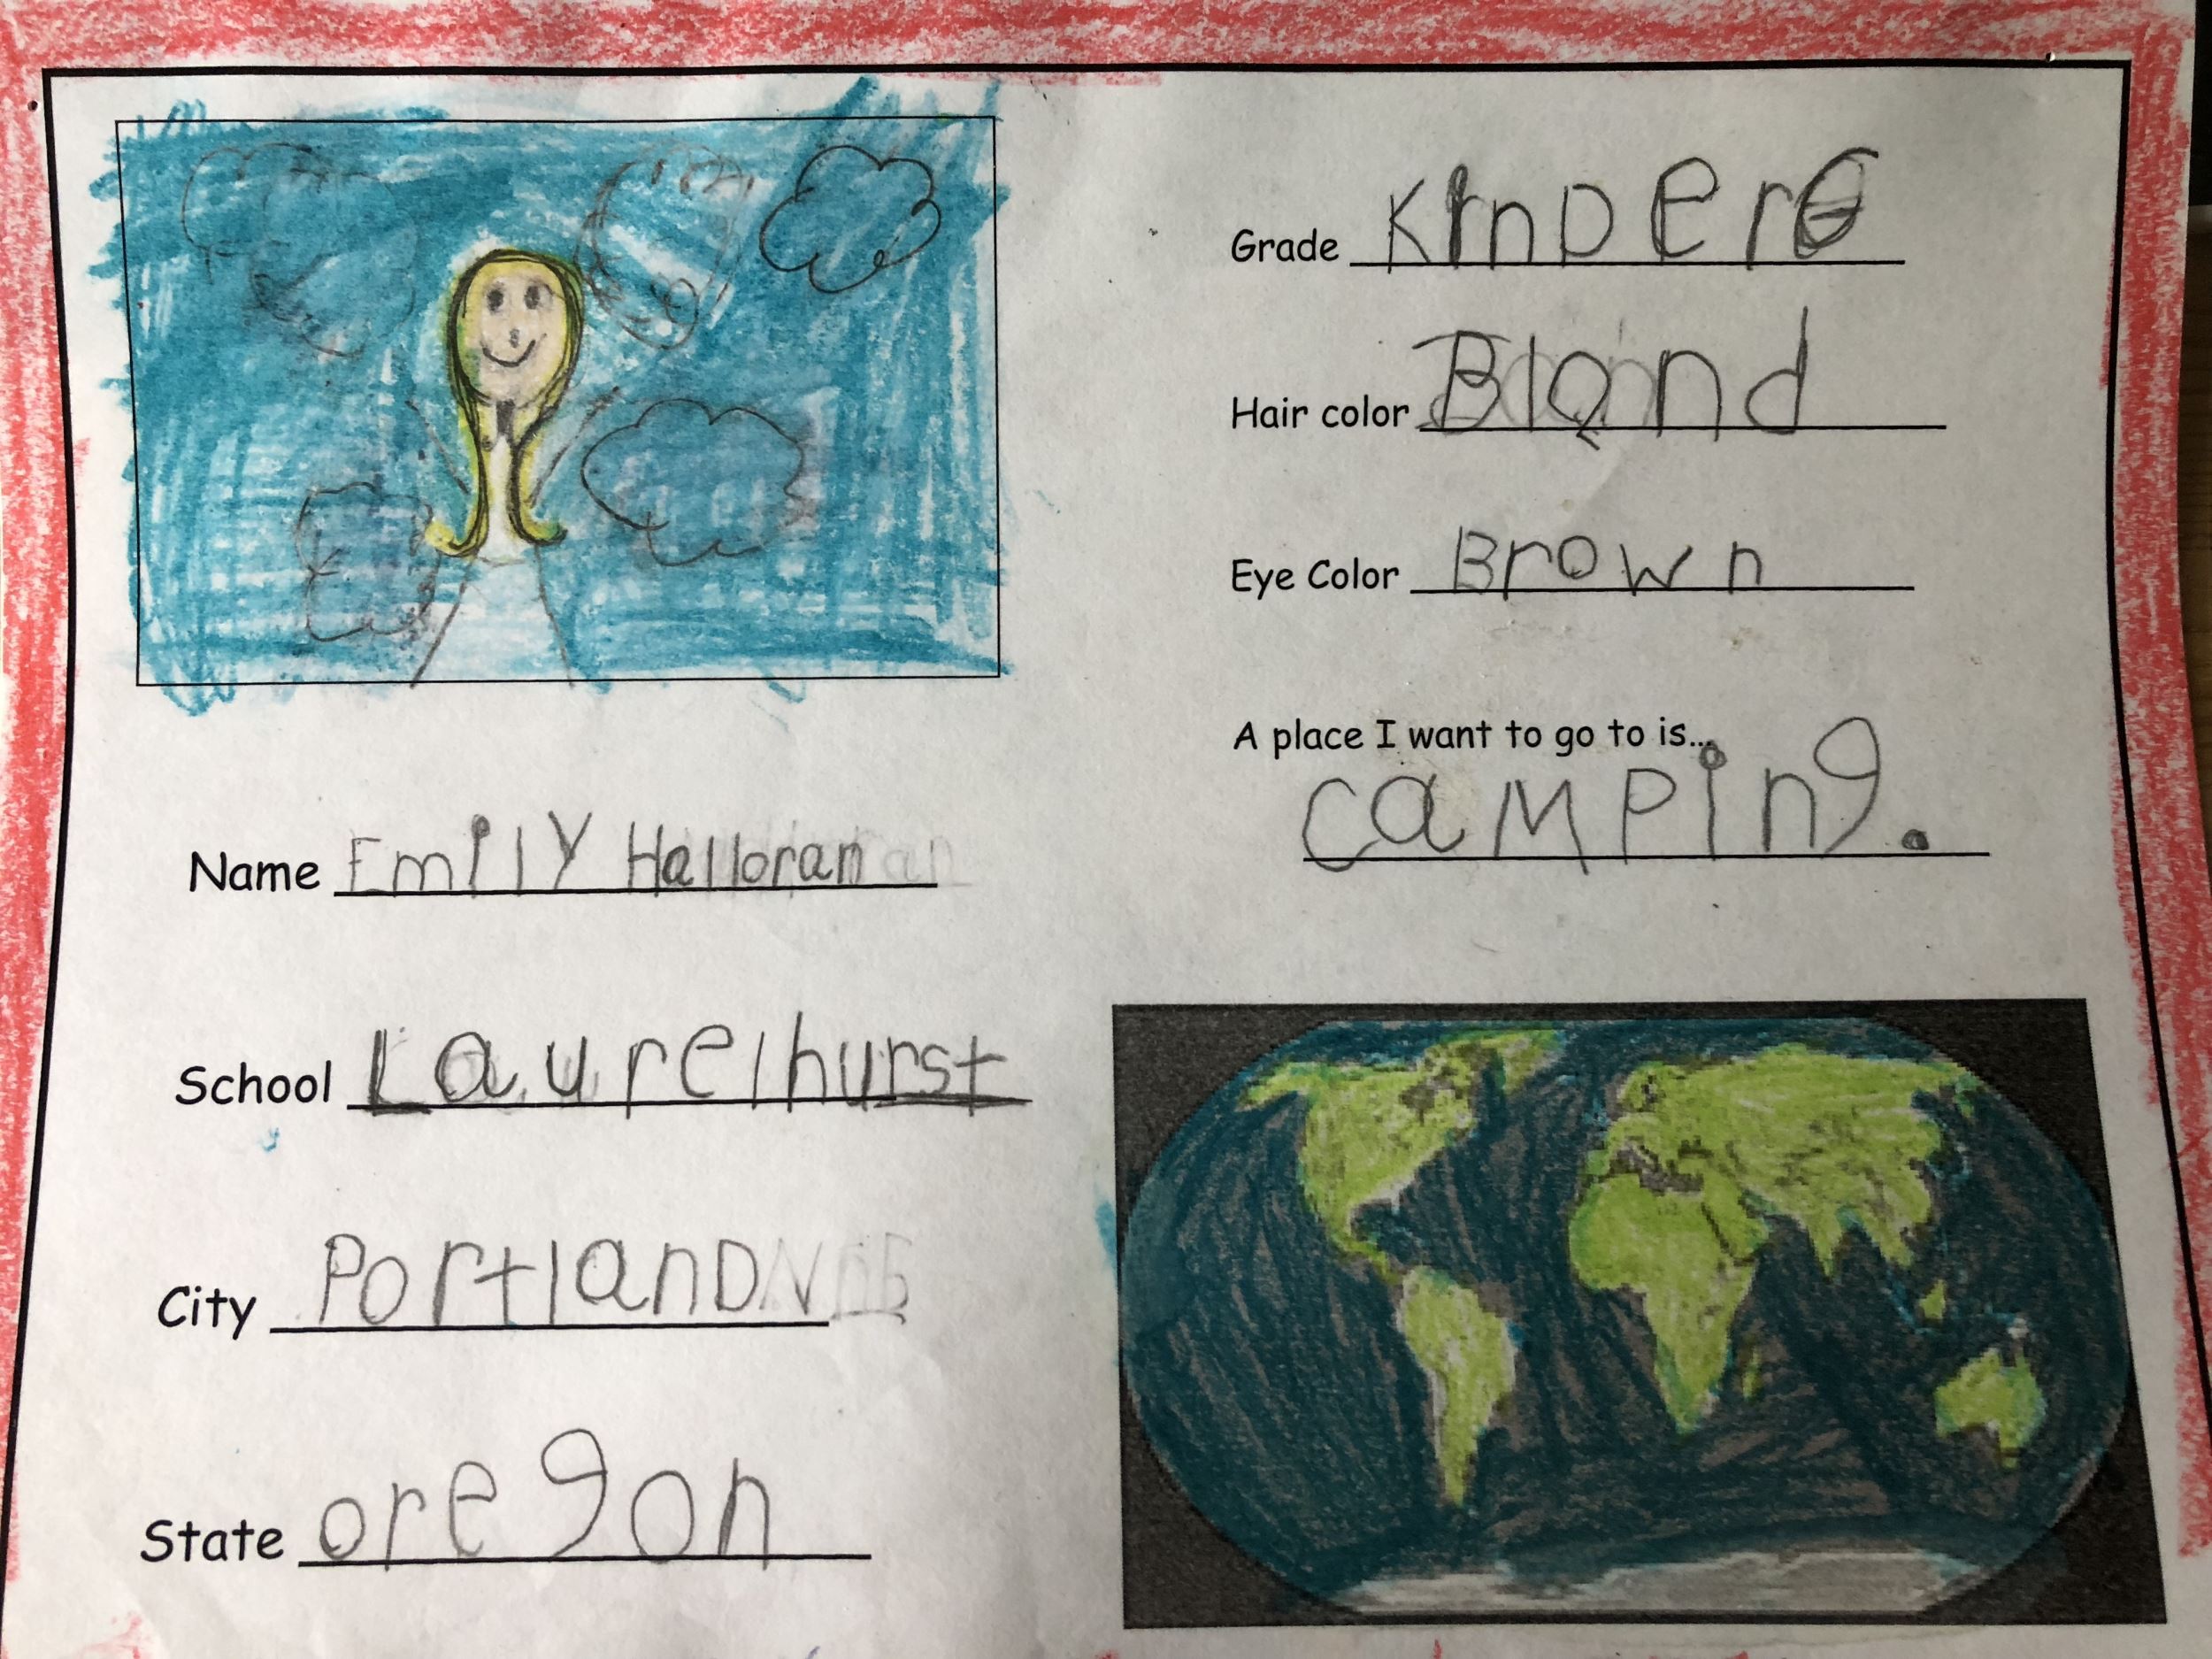 Grade KinDerG
Hair color Blond
Eye Color Brown
A place I want to go to is...
camping.
Name Emily Halloran
School Laurelhurst
City PortlanD
State oregon